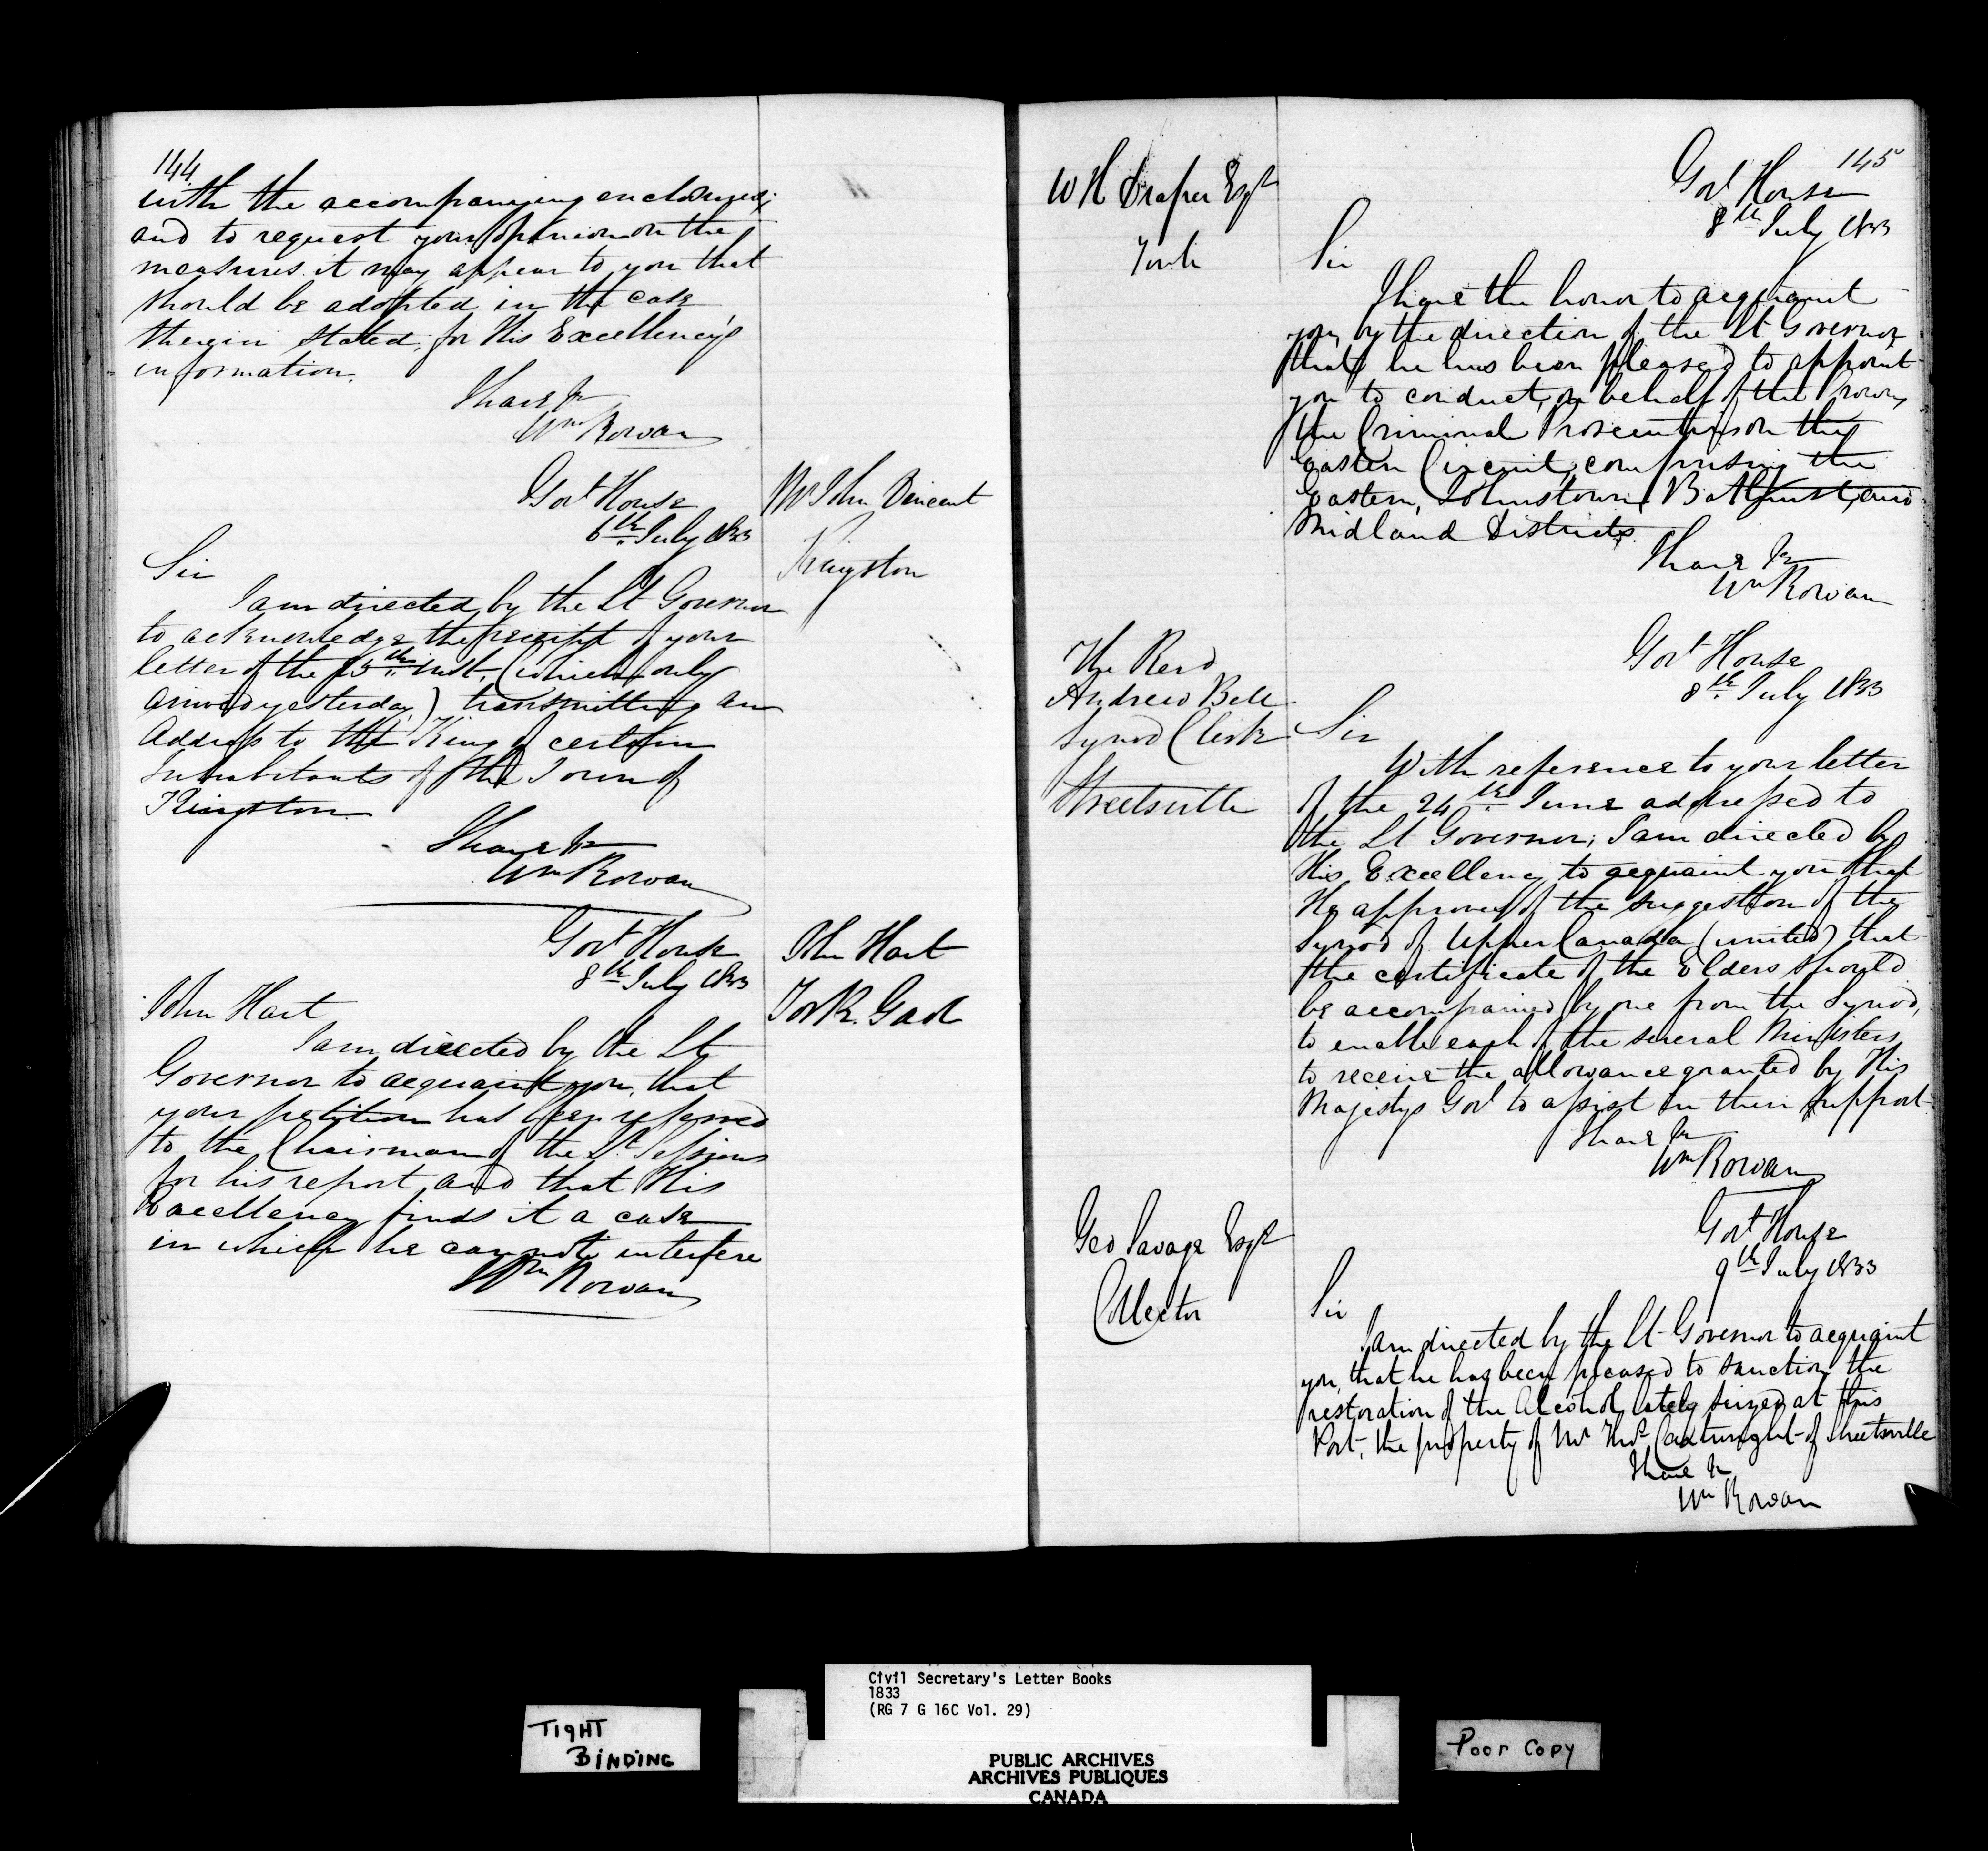 144
with the accompanying enclosures;
and to request your opinion on the
measures it may appear to you that
should be adopted in the case
therein stated, for His Excellency's
information.
I have &c
Wm Rowan
Govt House
6th July 1833
Mr John Vincent
Kingston
Sir
I am directed by the Lt Governor
to acknowledge the receipt of your
letter of the 15th ult. (which only
arrived yesterday,) transmitting an
Address to the King of certain
Inhabitants of the Town of
Kingston
I have &c
Wm Rowan
Govt House
8th July 1833
John Hart
York Gaol
John Hart
I am directed by the Lt
Governor to acquaint you, that
your petition has been referred
to the Chairman of the Sessions
for his report, and that His
Excellency finds it a case
in which he cannot interfere
Wm Rowan
145
W H Draper Esqr
York
Govt House
8th July 1833
Sir
I have the honor to acquaint
you, by the direction of the Lt Governor,
that he has been pleased to appoint
you to conduct, on behalf of the Crown,
the Criminal Prosecutions on the
Eastern Circuit, comprising the
Eastern, Johnstown, Bathurst, and
Midland Districts.
I have &c
Wm Rowan
The Revd
Andrew Bell
Synod Clerk
Streetsville
Govt House
8th July 1833
Sir
With reference to your letter
of the 24th June addressed to
the Lt Governor, I am directed by
His Excellency to acquaint you that
He approves of the suggestion of the
Synod of Upper Canada (united) that
the certificate of the Elders should
be accompanied by one from the Synod,
to enable each of the several Ministers
to receive the allowance granted by His
Majestys Govt to assist in their support.
I have &c
Wm Rowan
Geo Savage Esqr
Collector
Govt House
9th July 1833
Sir
I am directed by the Lt Governor to acquaint
you, that he has been pleased to sanction the
restoration of the Alcohol, lately seized at this
Port, the property of Mr Thos Cartwright of Streetsville
I have &c
Wm Rowan
TIGHT
BINDING
Civil Secretary's Letter Books
1833
(RG 7 G 16C Vol. 29)
PUBLIC ARCHIVES
ARCHIVES PUBLIQUES
CANADA
Poor Copy